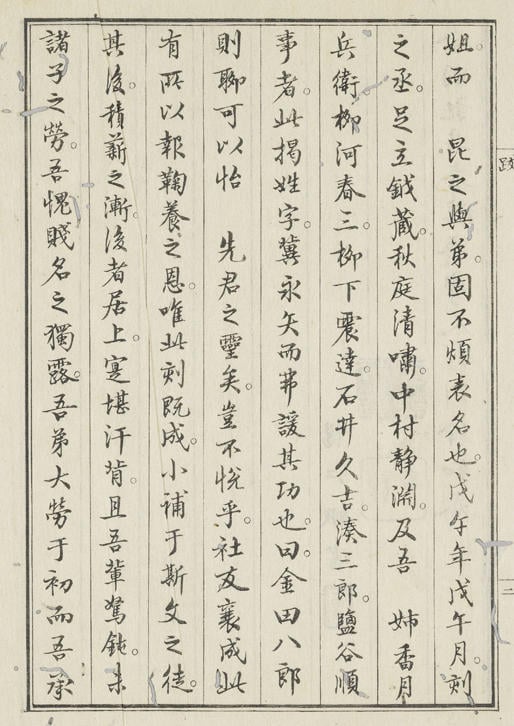 姐而　昆之與弟。固不煩表名也。戊午年戊午月刻
之丞。足立鉞藏。秋庭清嘯。中村静淵。及吾　姉香月
兵衛。柳河春三。柳下震達。石井久吉。湊三郎。鹽谷順
事者。此揭姓字。冀永矢而弗諼其功也。曰金田八郎
則聊可以怡　先君之靈矣。豈不悅乎。社友襄成此
有所以報鞠養之恩。唯此刻既成。小補于斯文之徒。
其後積薪之漸。後者居上。寔堪汗背。且吾輩駑鈍。未
諸子之勞。吾愧賤名之獨露。吾弟大勞于初而吾承
跋
二